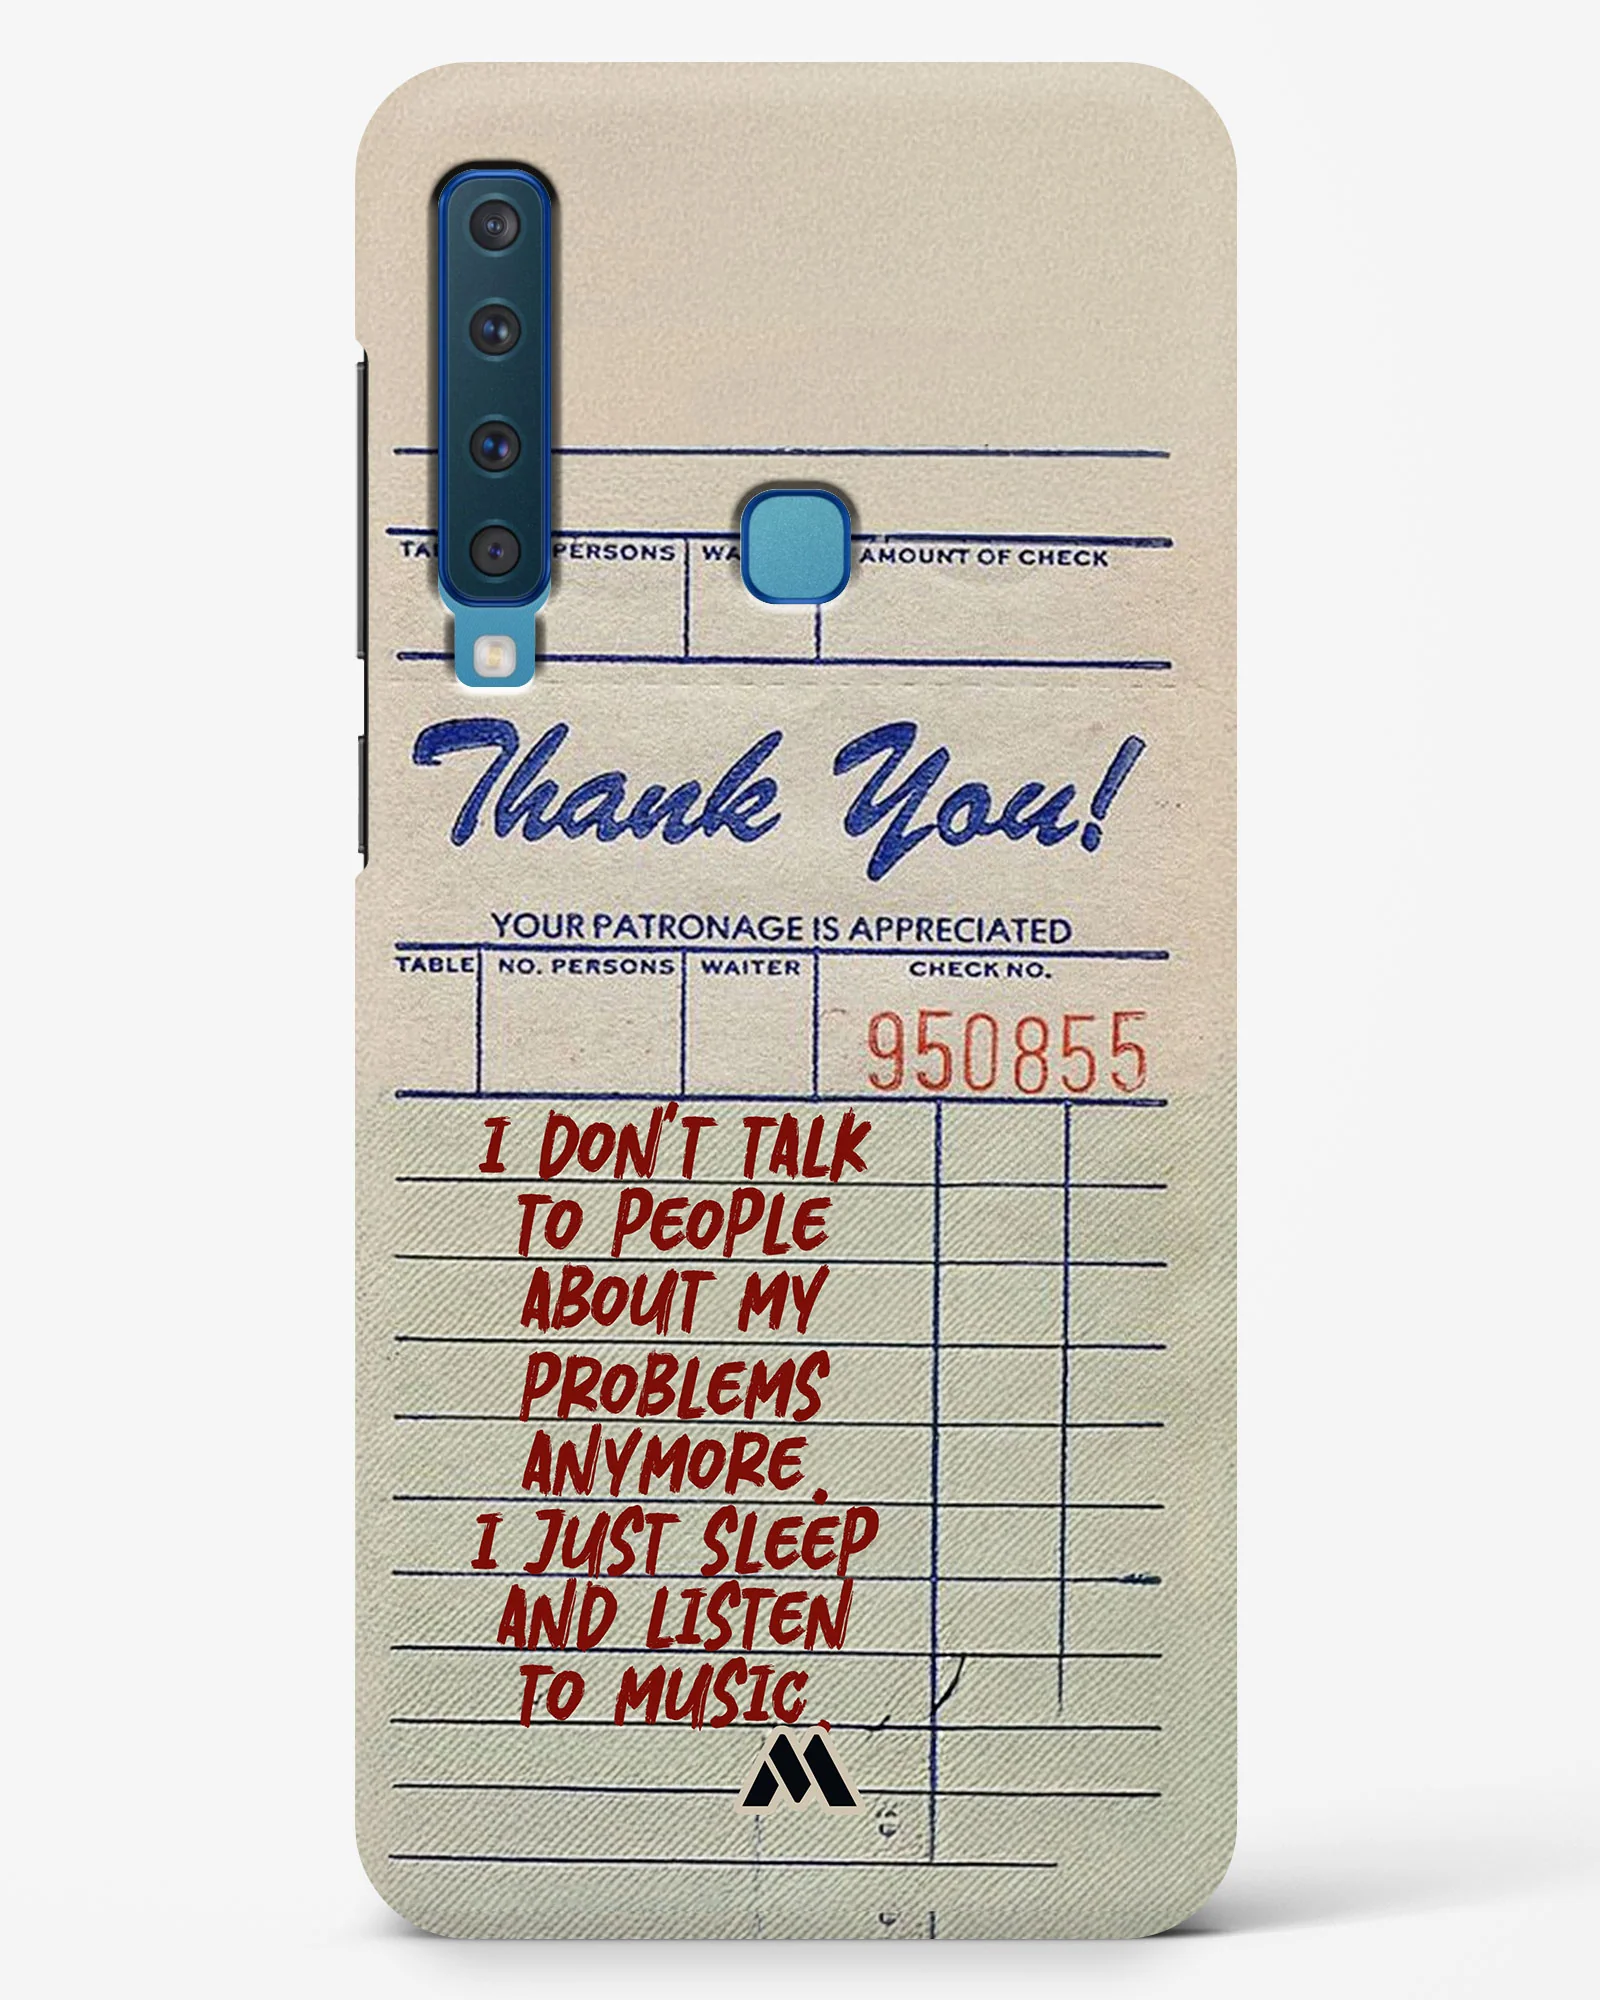 PERSONS AMOUNT OF CHECK
Thank You!
YOUR PATRONAGE IS APPRECIATED
TABLE NO. PERSONS WAITER CHECK NO.
950855
I DON'T TALK
TO PEOPLE
ABOUT MY
PROBLEMS
ANYMORE.
I JUST SLEEP
AND LISTEN
TO MUSIC.